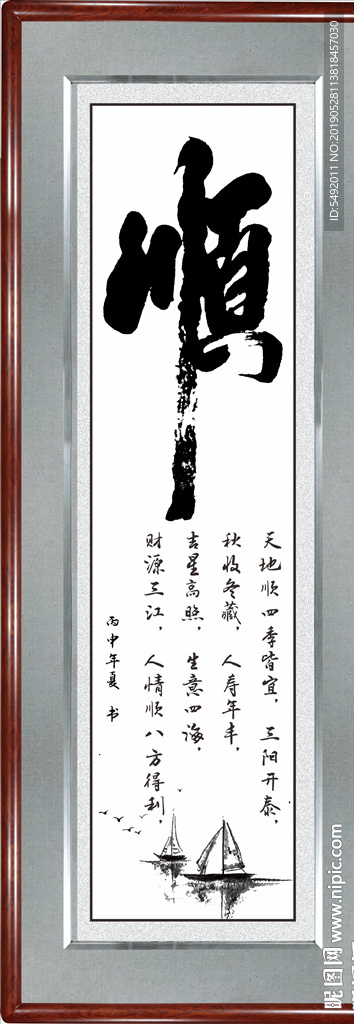 順
天地顺四季皆宜，三阳开泰，
秋收冬藏，人寿年丰，
吉星高照，生意四海，
财源三江，人情顺八方得利，
丙申年夏 书
ID:5492011 NO:20190528113818457030
昵图网 www.nipic.com